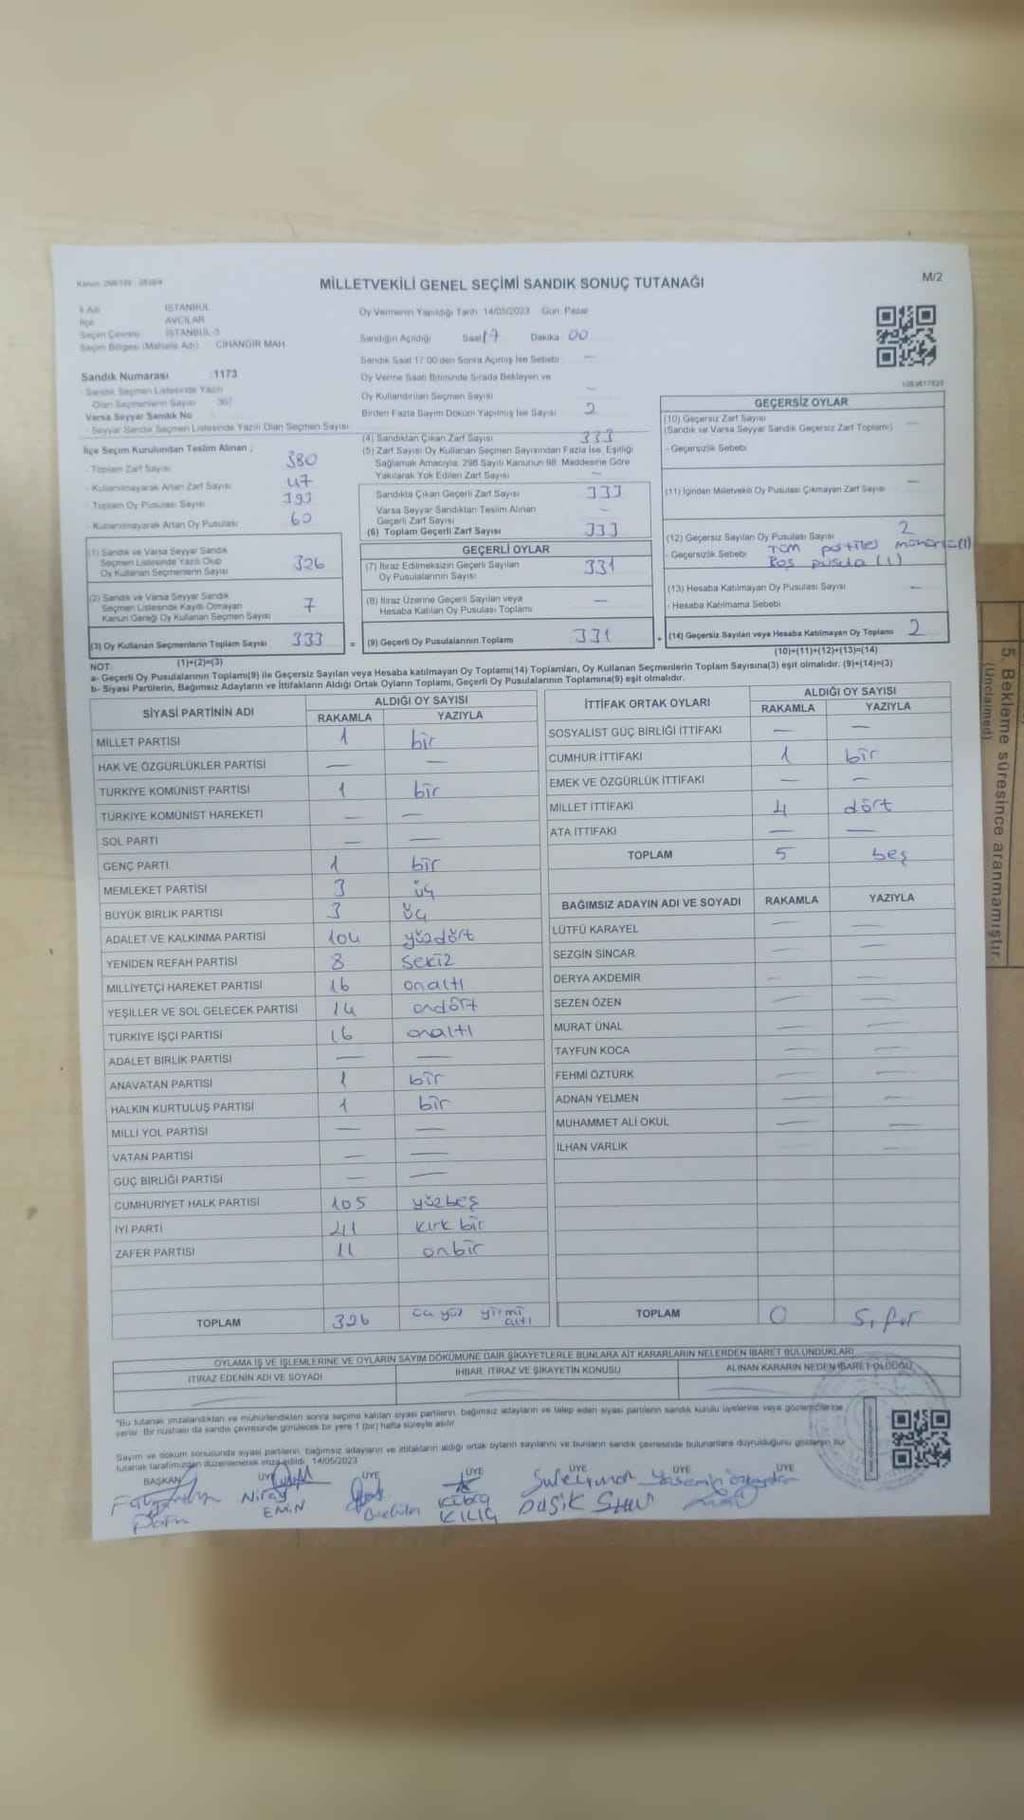 MİLLETVEKİLİ GENEL SEÇİMİ SANDIK SONUÇ TUTANAĞI
M/2
İli Adı İSTANBUL
İlçe AVCILAR
Seçim Çevresi İSTANBUL-3
Seçim Bölgesi (Mahalle Adı) CİHANGİR MAH.
Oy Vermenin Yapıldığı Tarih 14/05/2023 Gün: Pazar
Sandığın Açıldığı Saat 17 Dakika 00
Sandık Saat 17:00'den Sonra Açılmış İse Sebebi —
Oy Verme Saati Bitiminde Sırada Bekleyen ve
Oy Kullandırılan Seçmen Sayısı —
Birden Fazla Sayım Dökum Yapılmış İse Sayısı 2
Sandık Numarası 1173
Sandık Seçmen Listesinde Yazılı
Olan Seçmenlerin Sayısı
Varsa Seyyar Sandık No
Seyyar Sandık Seçmen Listesinde Yazılı Olan Seçmen Sayısı
İlçe Seçim Kurulundan Teslim Alınan ;
- Toplam Zarf Sayısı 380
- Kullanılmayarak Artan Zarf Sayısı 47
- Toplam Oy Pusulası Sayısı 393
- Kullanılmayarak Artan Oy Pusulası 60
(1) Sandık ve Varsa Seyyar Sandık
Seçmen Listesinde Yazılı Olup
Oy Kullanan Seçmenlerin Sayısı 326
(2) Sandık ve Varsa Seyyar Sandık
Seçmen Listesinde Kaydı Olmayan
Kanun Gereği Oy Kullanan Seçmen Sayısı 7
(3) Oy Kullanan Seçmenlerin Toplam Sayısı 333 =
(1)+(2)=(3)
(4) Sandıktan Çıkan Zarf Sayısı 333
(5) Zarf Sayısı Oy Kullanan Seçmen Sayısından Fazla İse, Eşitliği
Sağlamak Amacıyla, 298 Sayılı Kanunun 98. Maddesine Göre
Yakılarak Yok Edilen Zarf Sayısı —
Sandıkta Çıkan Geçerli Zarf Sayısı 333
Varsa Seyyar Sandıktan Teslim Alınan
Geçerli Zarf Sayısı —
(6) Toplam Geçerli Zarf Sayısı 333
GEÇERLİ OYLAR
(7) İtiraz Edilmeksizin Geçerli Sayılan
Oy Pusulasının Sayısı 331
(8) İtiraz Üzerine Geçerli Sayılan veya
Hesaba Katılan Oy Pusulası Toplamı —
(9) Geçerli Oy Pusulalarının Toplamı 331 +
GEÇERSİZ OYLAR
(10) Geçersiz Zarf Sayısı
(Sandık ve Varsa Seyyar Sandık Geçersiz Zarf Toplamı) —
- Geçersizlik Sebebi
(11) İçinden Milletvekili Oy Pusulası Çıkmayan Zarf Sayısı —
(12) Geçersiz Sayılan Oy Pusulası Sayısı 2
- Geçersizlik Sebebi Tüm partiler (1)
Boş pusula (1)
(13) Hesaba Katılmayan Oy Pusulası Sayısı —
- Hesaba Katılmama Sebebi
(14) Geçersiz Sayılan veya Hesaba Katılmayan Oy Toplamı 2
(10)+(11)+(12)+(13)=(14)
NOT:
a- Geçerli Oy Pusulalarının Toplamı(9) ile Geçersiz Sayılan veya Hesaba katılmayan Oy Toplamı(14) Toplamları, Oy Kullanan Seçmenlerin Toplam Sayısına(3) eşit olmalıdır. (9)+(14)=(3)
b- Siyasi Partilerin, Bağımsız Adayların ve İttifakların Aldığı Ortak Oyların Toplamı, Geçerli Oy Pusulalarının Toplamına(9) eşit olmalıdır.
SİYASİ PARTİNİN ADI ALDIĞI OY SAYISI
RAKAMLA YAZIYLA
MİLLET PARTİSİ 1 bir
HAK VE ÖZGÜRLÜKLER PARTİSİ — —
TÜRKİYE KOMÜNİST PARTİSİ 1 bir
TÜRKİYE KOMÜNİST HAREKETİ — —
SOL PARTİ — —
GENÇ PARTİ 1 bir
MEMLEKET PARTİSİ 3 üç
BÜYÜK BİRLİK PARTİSİ 3 üç
ADALET VE KALKINMA PARTİSİ 104 yüzdört
YENİDEN REFAH PARTİSİ 8 sekiz
MİLLİYETÇİ HAREKET PARTİSİ 16 onaltı
YEŞİLLER VE SOL GELECEK PARTİSİ 14 ondört
TÜRKİYE İŞÇİ PARTİSİ 16 onaltı
ADALET BİRLİK PARTİSİ — —
ANAVATAN PARTİSİ 1 bir
HALKIN KURTULUŞ PARTİSİ 1 bir
MİLLİ YOL PARTİSİ — —
VATAN PARTİSİ — —
GÜÇ BİRLİĞİ PARTİSİ — —
CUMHURİYET HALK PARTİSİ 105 yüzbeş
İYİ PARTİ 41 kırk bir
ZAFER PARTİSİ 11 onbir
TOPLAM 326 üç yüz yirmi altı
İTTİFAK ORTAK OYLARI ALDIĞI OY SAYISI
RAKAMLA YAZIYLA
SOSYALİST GÜÇ BİRLİĞİ İTTİFAKI — —
CUMHUR İTTİFAKI 1 bir
EMEK VE ÖZGÜRLÜK İTTİFAKI — —
MİLLET İTTİFAKI 4 dört
ATA İTTİFAKI — —
TOPLAM 5 beş
BAĞIMSIZ ADAYIN ADI VE SOYADI RAKAMLA YAZIYLA
LÜTFÜ KARAYEL — —
SEZGİN SİNCAR — —
DERYA AKDEMİR — —
SEZEN ÖZEN — —
MURAT ÜNAL — —
TAYFUN KOCA — —
FEHMİ ÖZTÜRK — —
ADNAN YELMEN — —
MUHAMMET ALİ OKUL — —
İLHAN VARLIK — —
TOPLAM 0 Sıfır
OYLAMA İŞ VE İŞLEMLERİNE VE OYLARIN SAYIM DÖKÜMÜNE DAİR ŞİKAYETLERLE BUNLARA AİT KARARLARIN NELERDEN İBARET BULUNDUKLARI
İTİRAZ EDENİN ADI VE SOYADI İHBAR, İTİRAZ VE ŞİKAYETİN KONUSU ALINAN KARARIN NEDEN İBARET OLDUĞU
*Bu tutanak imzalandıktan ve mühürlendikten sonra seçime katılan siyasi partilerin, bağımsız adayların ve talep eden siyasi partilerin sandık kurulu üyelerine veya gözlemcilerine
verilir. Bir nüshası da sandık çevresinde görülecek bir yere 1 (bir) hafta süreyle asılır.
Sayım ve döküm sonucunda siyasi partilerin, bağımsız adayların ve ittifakların aldığı ortak oyların sayılarını ve bunların sandık çevresinde bulunanlara duyrulduğunu gösteren bu
tutanak tarafımızdan düzenlenerek imza edildi. 14/05/2023
BAŞKAN ÜYE ÜYE ÜYE ÜYE ÜYE ÜYE
Niray EMİN
Kübra KILIÇ
Süleyman
5. Bekleme süresince aranmamıştır.
(Unclaimed)